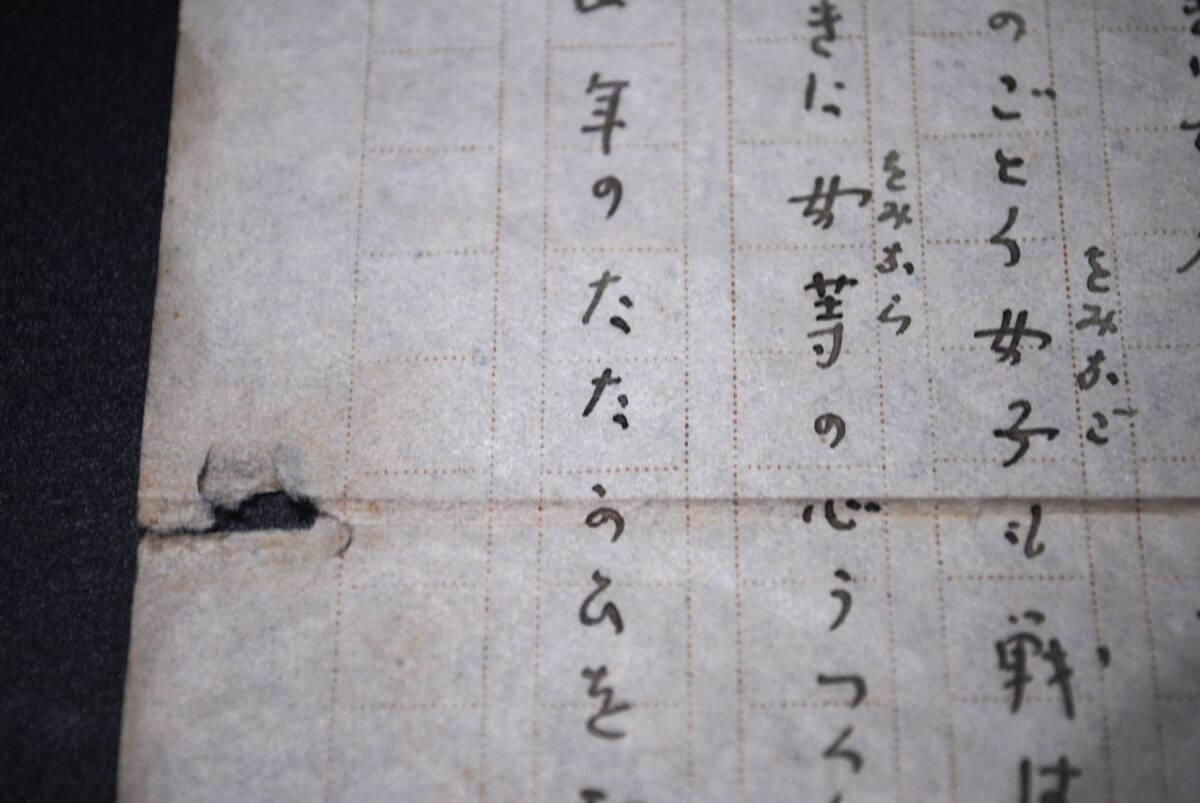 のごとく女子も戦は
をみなご
きに女等の心うつく
をみなら
年のたたかひを